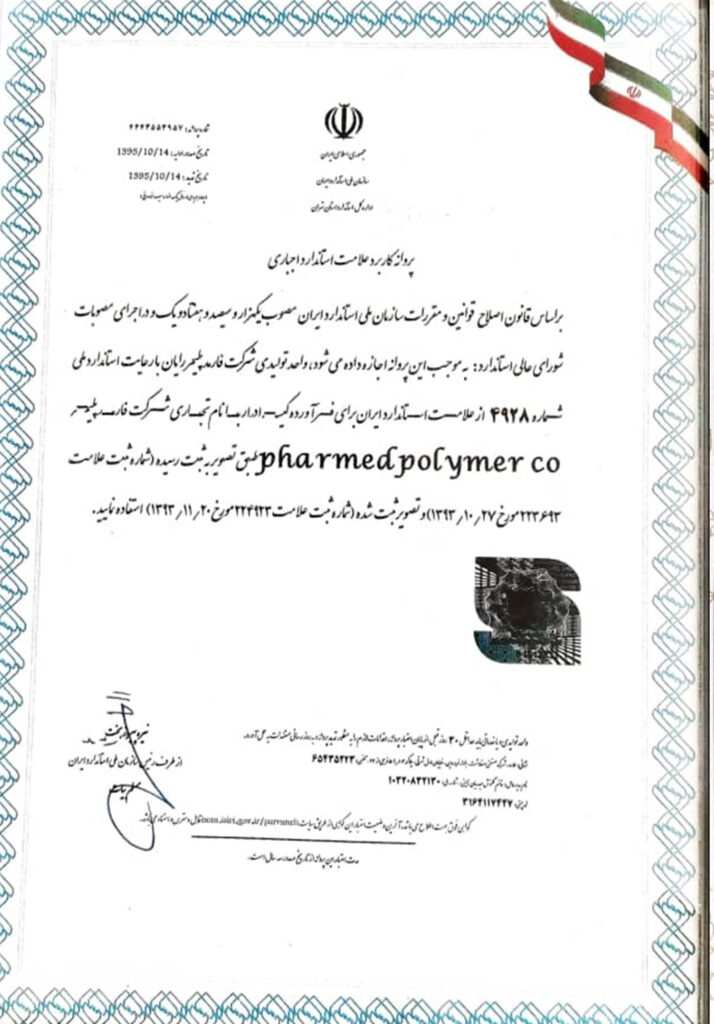 جمهوری اسلامی ایران
سازمان ملی استاندارد ایران
اداره کل استاندارد استان تهران
شماره پروانه: ۴۴۴۴۵۵۲۹۵۷
تاریخ صدور اولیه: 1395/10/14
تاریخ تمدید: 1395/10/14
پروانه کاربرد علامت استاندارد اجباری
براساس قانون اصلاح قوانین و مقررات سازمان ملی استاندارد ایران مصوب یکهزار و سیصد و هفتاد و یک و در اجرای مصوبات
شورای عالی استاندارد: به موجب این پروانه اجازه داده می شود، واحد تولیدی شرکت فارمد پلیمر رایان با رعایت استاندارد ملی
شماره ۴۹۲۸ از علامت استاندارد ایران برای فرآورده کیسه ادرار با نام تجاری شرکت فارمد پلیمر
pharmedpolymer co طبق تصویر به ثبت رسیده (شماره ثبت علامت
۲۲۳۶۹۳ مورخ ۱۳۹۳٫۱۰٫۲۷) و تصویر ثبت شده (شماره ثبت علامت ۲۲۴۹۲۳ مورخ ۱۳۹۳٫۱۱٫۲۰) استفاده نمایید.
واحد تولیدی و یا خدماتی باید حداقل ۳۰ روز قبل از پایان اعتبار پروانه، اقدامات لازم را به منظور تمدید پروانه و به روز رسانی مستندات به عمل آورد.
۶۵۴۳۵۲۲۳
۱۰۳۲۰۸۳۲۱۳۰
۳۱۶۴۱۱۷۴۴۷
از طرف رئیس سازمان ملی استاندارد ایران
مدت اعتبار این پروانه از تاریخ صدور سه سال است.